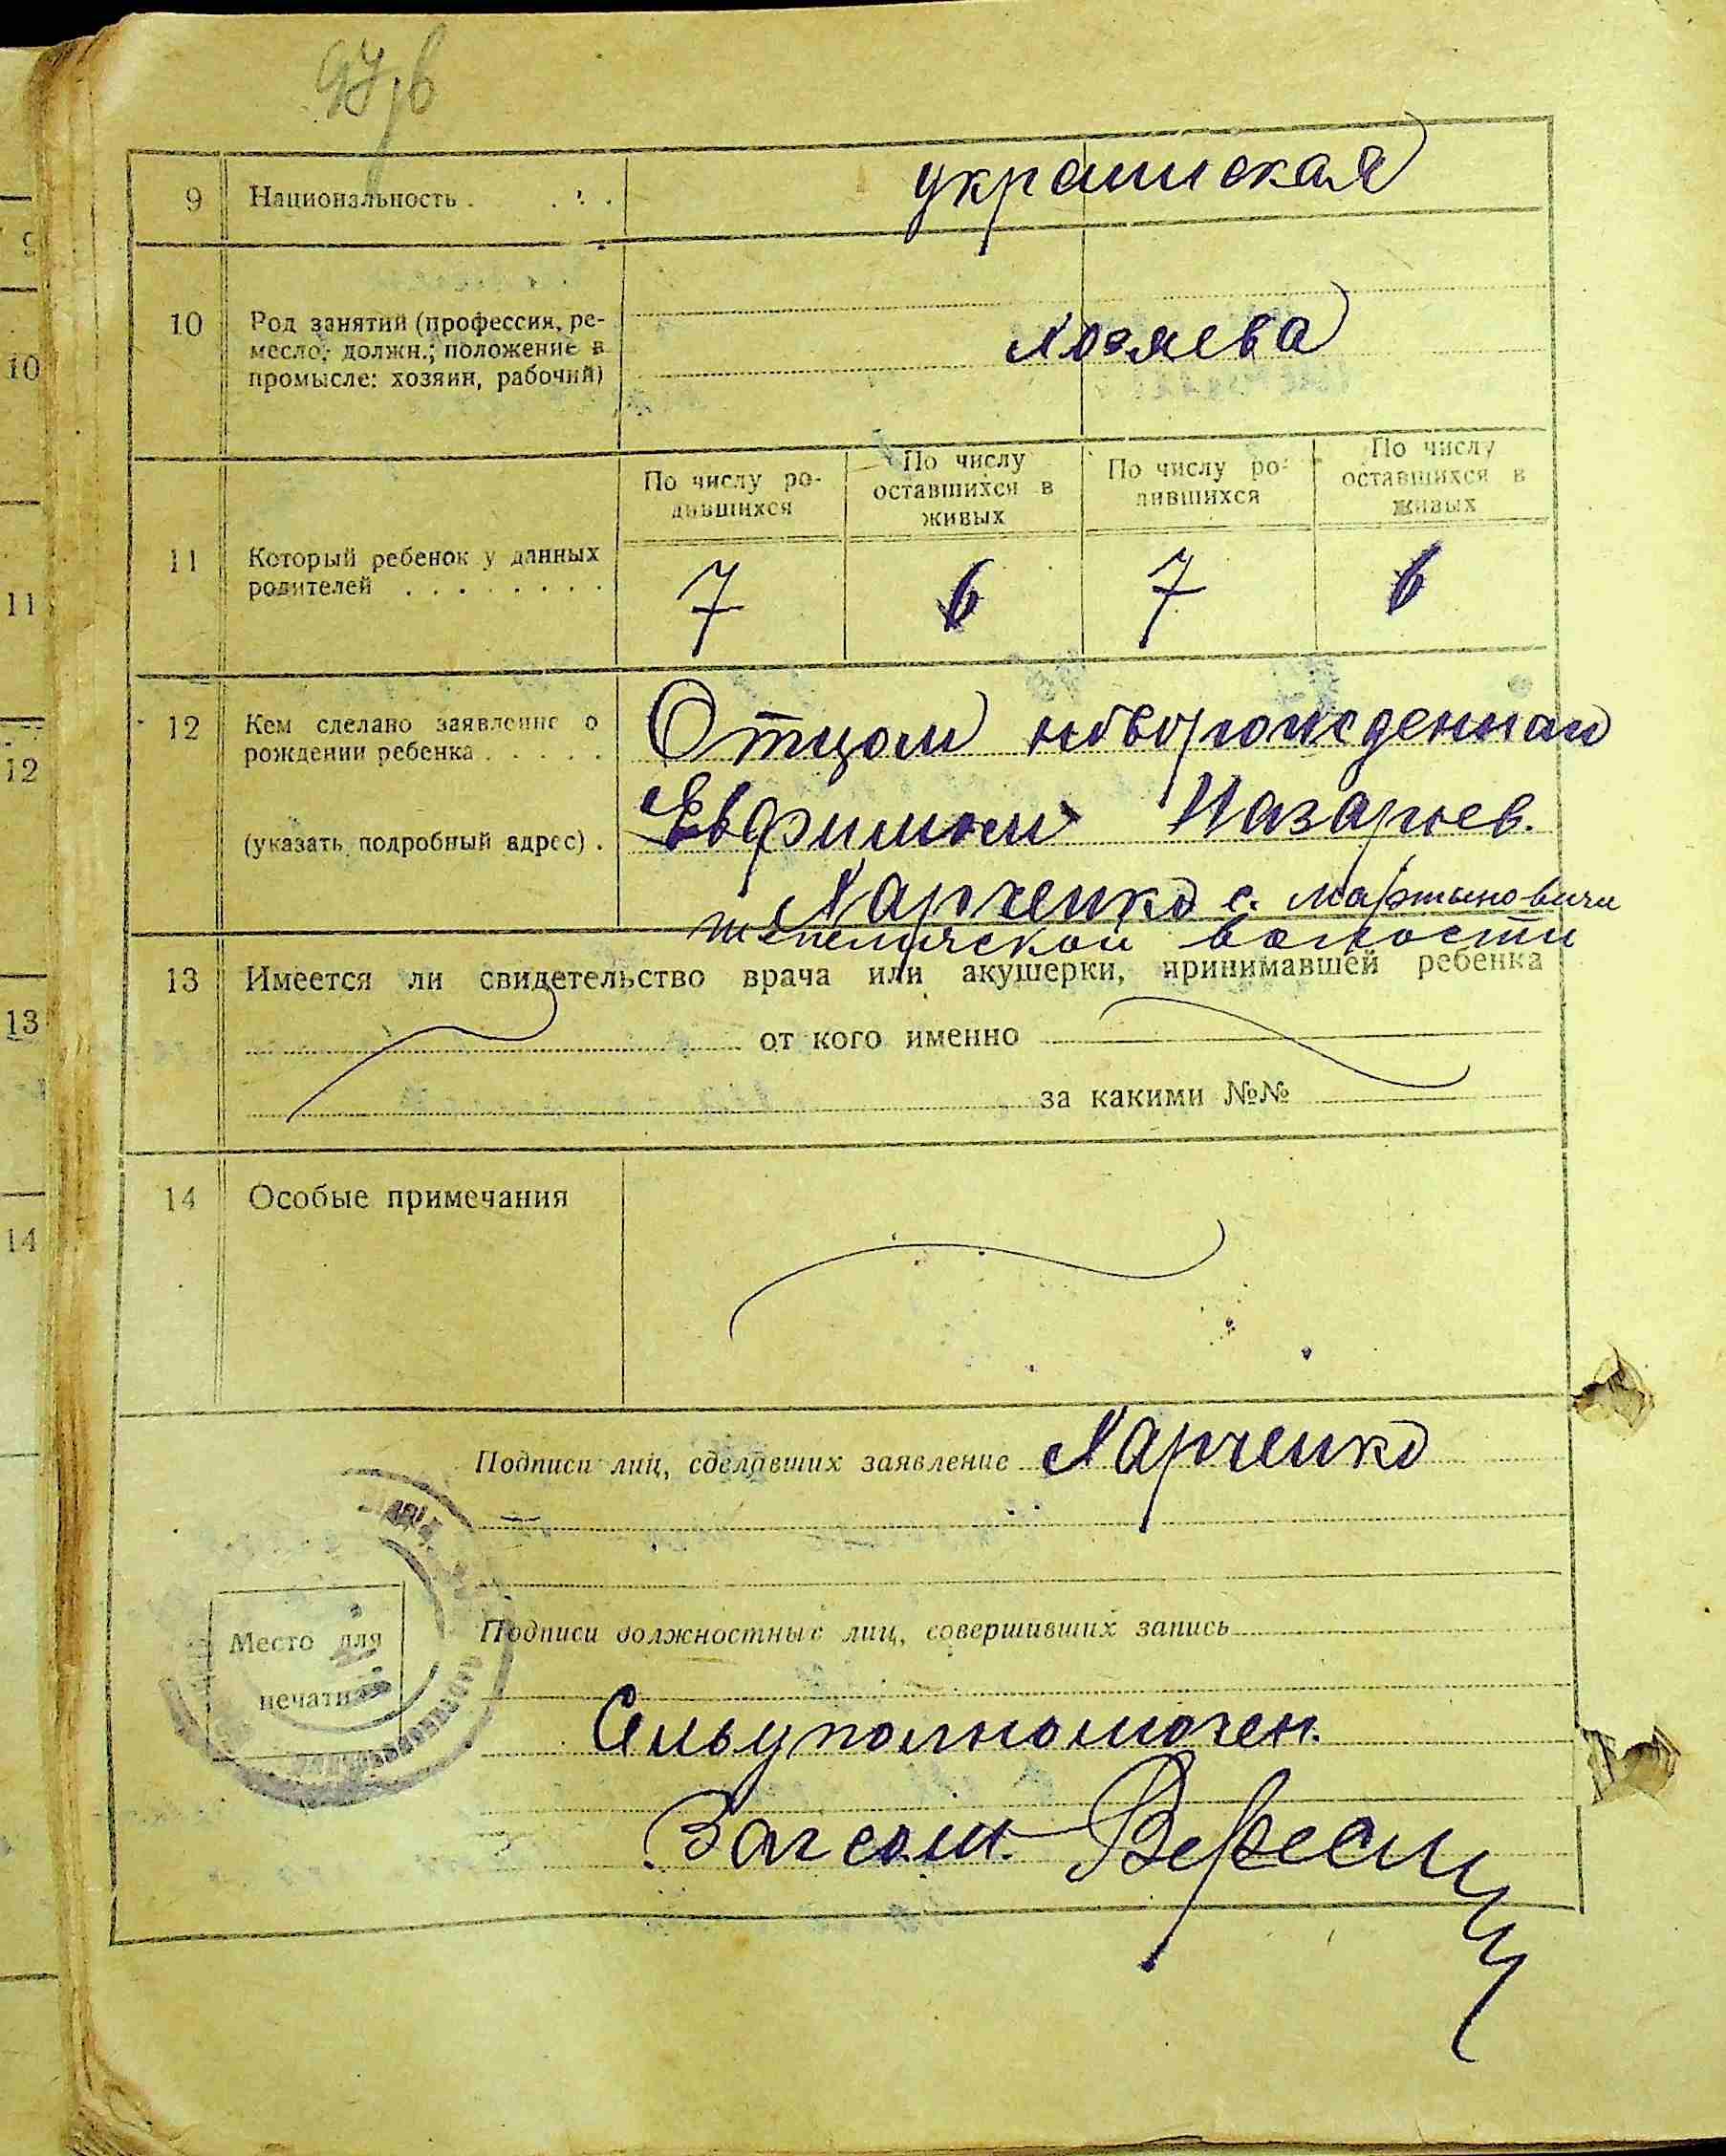 9 Национальность . . . . украинская
10 Род занятий (профессия, ре-
месло, должн.; положение в
промысле: хозяин, рабочий)
хозяева
По числу ро-
дившихся
По числу
оставшихся в
живых
По числу ро-
дившихся
По числу
оставшихся в
живых
11 Который ребенок у данных
родителей . . . . . . . .
7 6 7 6
12 Кем сделано заявление о
рождении ребенка . . . . .
(указать подробный адрес) .
Отцом новорожденной
Евфимом Назарьев.
Харченко с. Мартыновичи
Шепеличской волости
13 Имеется ли свидетельство врача или акушерки, принимавшей ребенка
от кого именно
за какими №№
14 Особые примечания
Подписи лиц, сделавших заявление Харченко
Подписи должностных лиц, совершивших запись
Место для
печати
Сельуполномочен.
Загсом
9
10
11
12
13
14